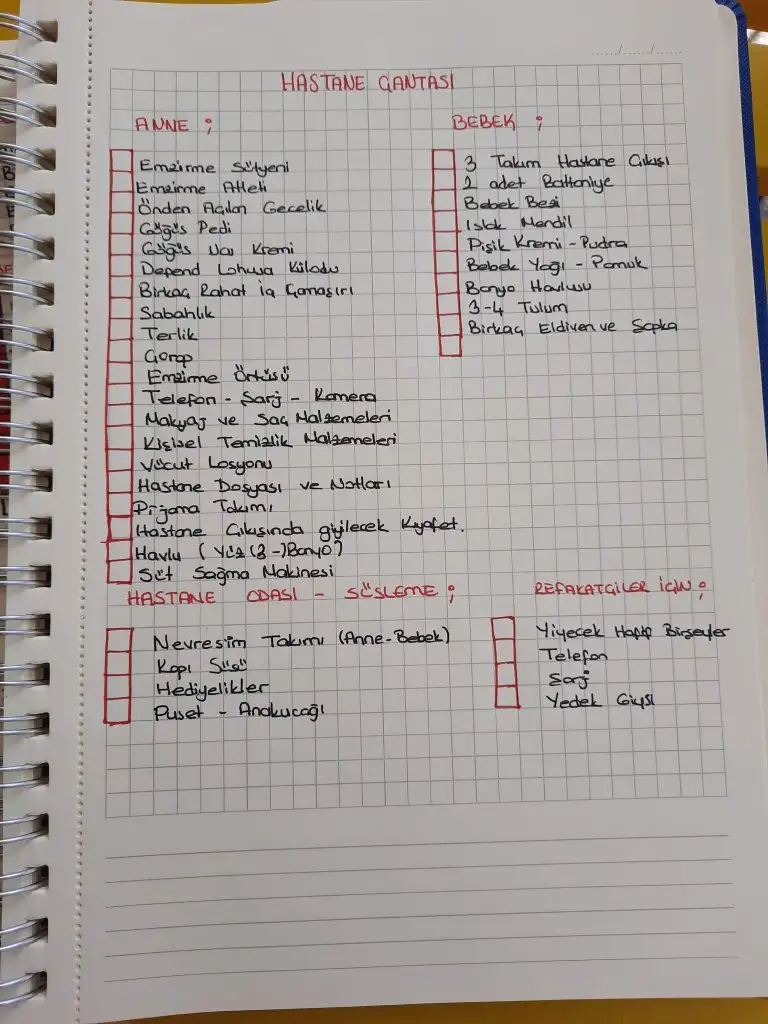 ....../....../......
HASTANE ÇANTASI
ANNE ;
Emzirme Sütyeni
Emzirme Atleti
Önden Açılan Gecelik
Göğüs Pedi
Göğüs Ucu Kremi
Depend Lohusa Külodu
Birkaç Rahat İç Çamaşırı
Sabahlık
Terlik
Çorap
Emzirme Örtüsü
Telefon - Şarj - Kamera
Makyaj ve Saç Malzemeleri
Kişisel Temizlik Malzemeleri
Vücut Losyonu
Hastane Dosyası ve Notları
Pijama Takımı
Hastane Çıkışında giyilecek Kıyafet.
Havlu ( Yüz (3-) Banyo)
Süt Sağma Makinesi
BEBEK ;
3 Takım Hastane Çıkışı
2 adet Battaniye
Bebek Bezi
Islak Mendil
Pişik Kremi - Pudra
Bebek Yağı - Pamuk
Banyo Havlusu
3-4 Tulum
Birkaç Eldiven ve Şapka
HASTANE ODASI - SÜSLEME ;
Nevresim Takımı (Anne-Bebek)
Kapı Süsü
Hediyelikler
Puset - Anakucağı
REFAKATÇİLER İÇİN ;
Yiyecek Hafif Birşeyler
Telefon
Şarj
Yedek Giysi